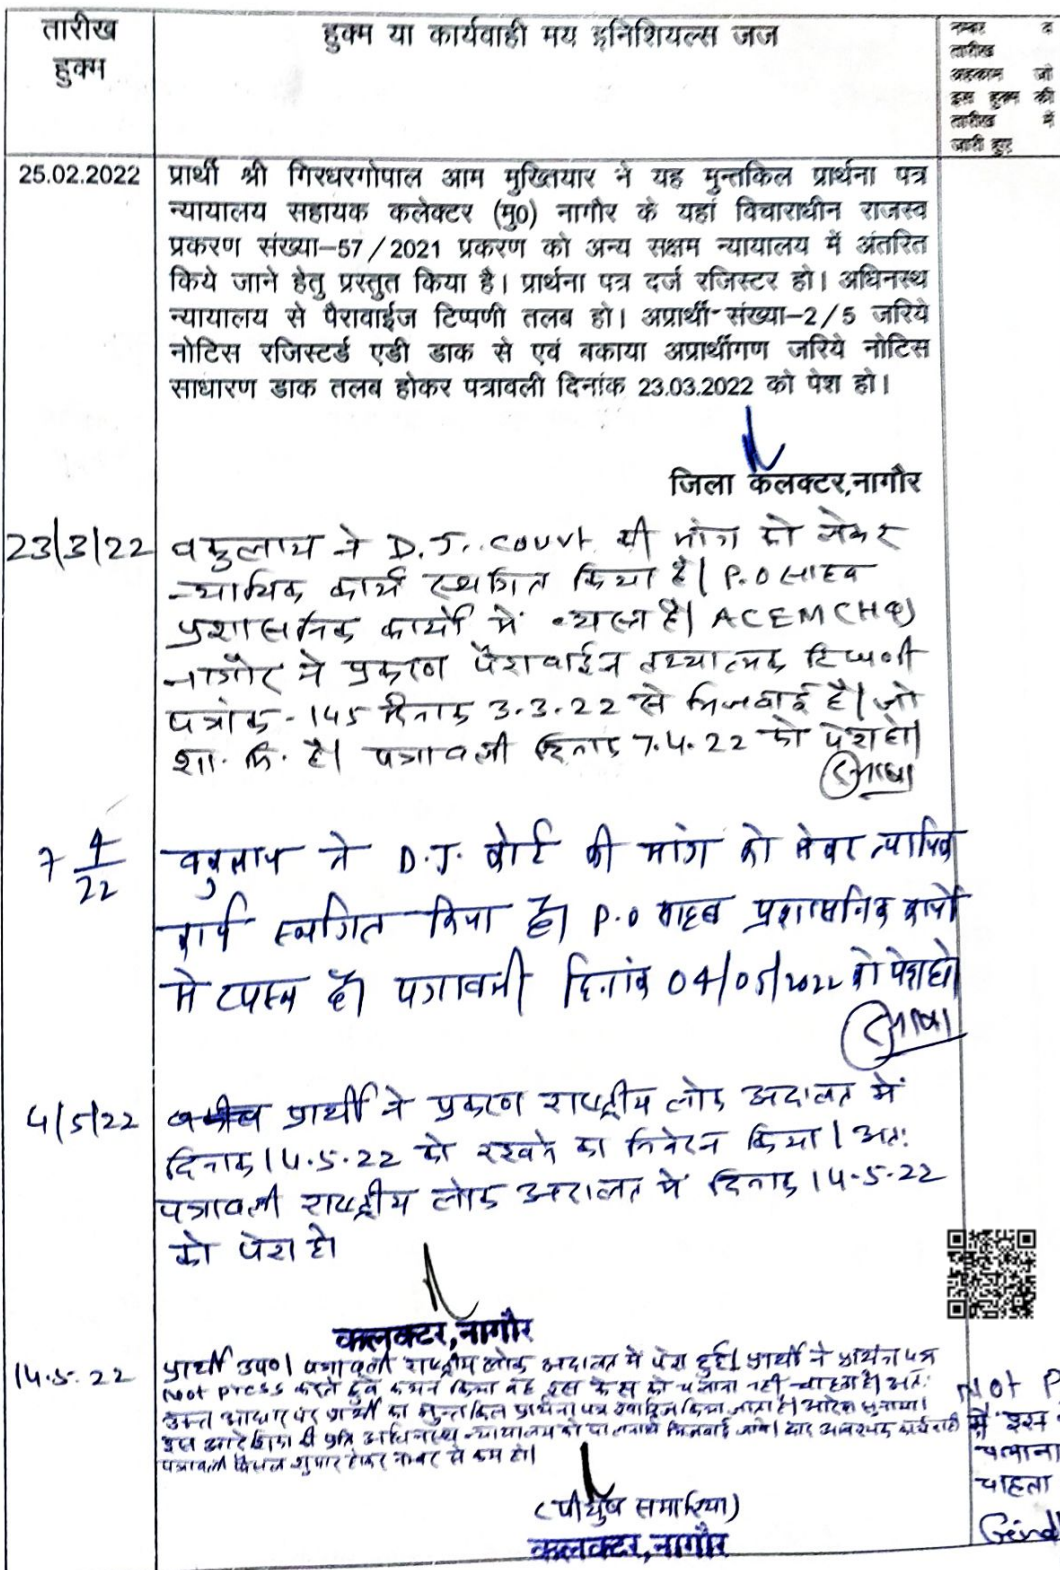 तारीख
हुक्म
हुक्म या कार्यवाही मय इनिशियल्स जज
नम्बर व
तारीख
अहकाम जो
इस हुक्म की
तारीख में
जारी हुए
25.02.2022
प्रार्थी श्री गिरधरगोपाल आम मुख्तियार ने यह मुन्तकिल प्रार्थना पत्र
न्यायालय सहायक कलेक्टर (मु0) नागौर के यहां विचाराधीन राजस्व
प्रकरण संख्या-57/2021 प्रकरण को अन्य सक्षम न्यायालय में अंतरित
किये जाने हेतु प्रस्तुत किया है। प्रार्थना पत्र दर्ज रजिस्टर हो। अधिनस्थ
न्यायालय से पैरावाईज टिप्पणी तलब हो। अप्रार्थी संख्या-2/5 जरिये
नोटिस रजिस्टर्ड एडी डाक से एवं बकाया अप्रार्थीगण जरिये नोटिस
साधारण डाक तलब होकर पत्रावली दिनांक 23.03.2022 को पेश हो।
जिला कलक्टर,नागौर
23/3/22 वकुलाय ने D.J. Court की मांग को लेकर
न्यायिक कार्य स्थगित किया है। P.O साहब
प्रशासनिक कार्यो में व्यस्त है। ACEM(HQ)
नागौर ने प्रकरण पैरावाईज तथ्यात्मक टिप्पणी
पत्रांक-145 दिनांक 3.3.22 से भिजवाई है। जो
शा. मि. है। पत्रावली दिनांक 7.4.22 को पेश हो।
7 4/22 वकुलाय ने D.J. कोर्ट की मांग को लेकर न्यायिक
कार्य स्थगित किया है। P.O साहब प्रशासनिक कार्यो
मे व्यस्त है। पत्रावली दिनांक 04/05/2022 को पेश हो।
4/5/22 प्रार्थी ने प्रकरण राष्ट्रीय लोक अदालत में
दिनांक 14.5.22 को रखने का निवेदन किया। अतः
पत्रावली राष्ट्रीय लोक अदालत में दिनांक 14.5.22
को पेश हो।
कलक्टर,नागौर
14.5.22 प्रार्थी उप०। पत्रावली राष्ट्रीय लोक अदालत में पेश हुई। प्रार्थी ने प्रार्थना पत्र
Not press करते हुवे कथन किया वह इस केस को चलाना नही चाहता है। अतः
उक्त आधार पर प्रार्थी का मुन्तकिल प्रार्थना पत्र खारिज किया जाता है। आदेश सुनाया।
इस आदेशिका की प्रति अधिनस्थ न्यायालय को पालनार्थ भिजवाई जावे। बाद आवश्यक कार्यवाही
पत्रावली फैसल शुमार होकर नम्बर से कम हो।
(पीयुष समारिया)
कलक्टर,नागौर
Not P
में इस
चलाना
चाहता